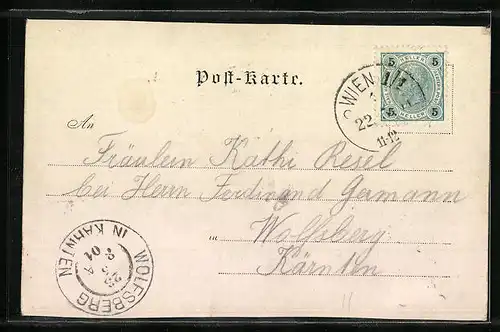 Post-Karte.
WIEN 1/1
22
11-12
5 5
HELLER
5 5
An
Fräulein Kathi Resel
bei Herrn Ferdinand Germann
in Wolfsberg
Kärnten
WOLFSBERG IN KÄRNTEN
23
01